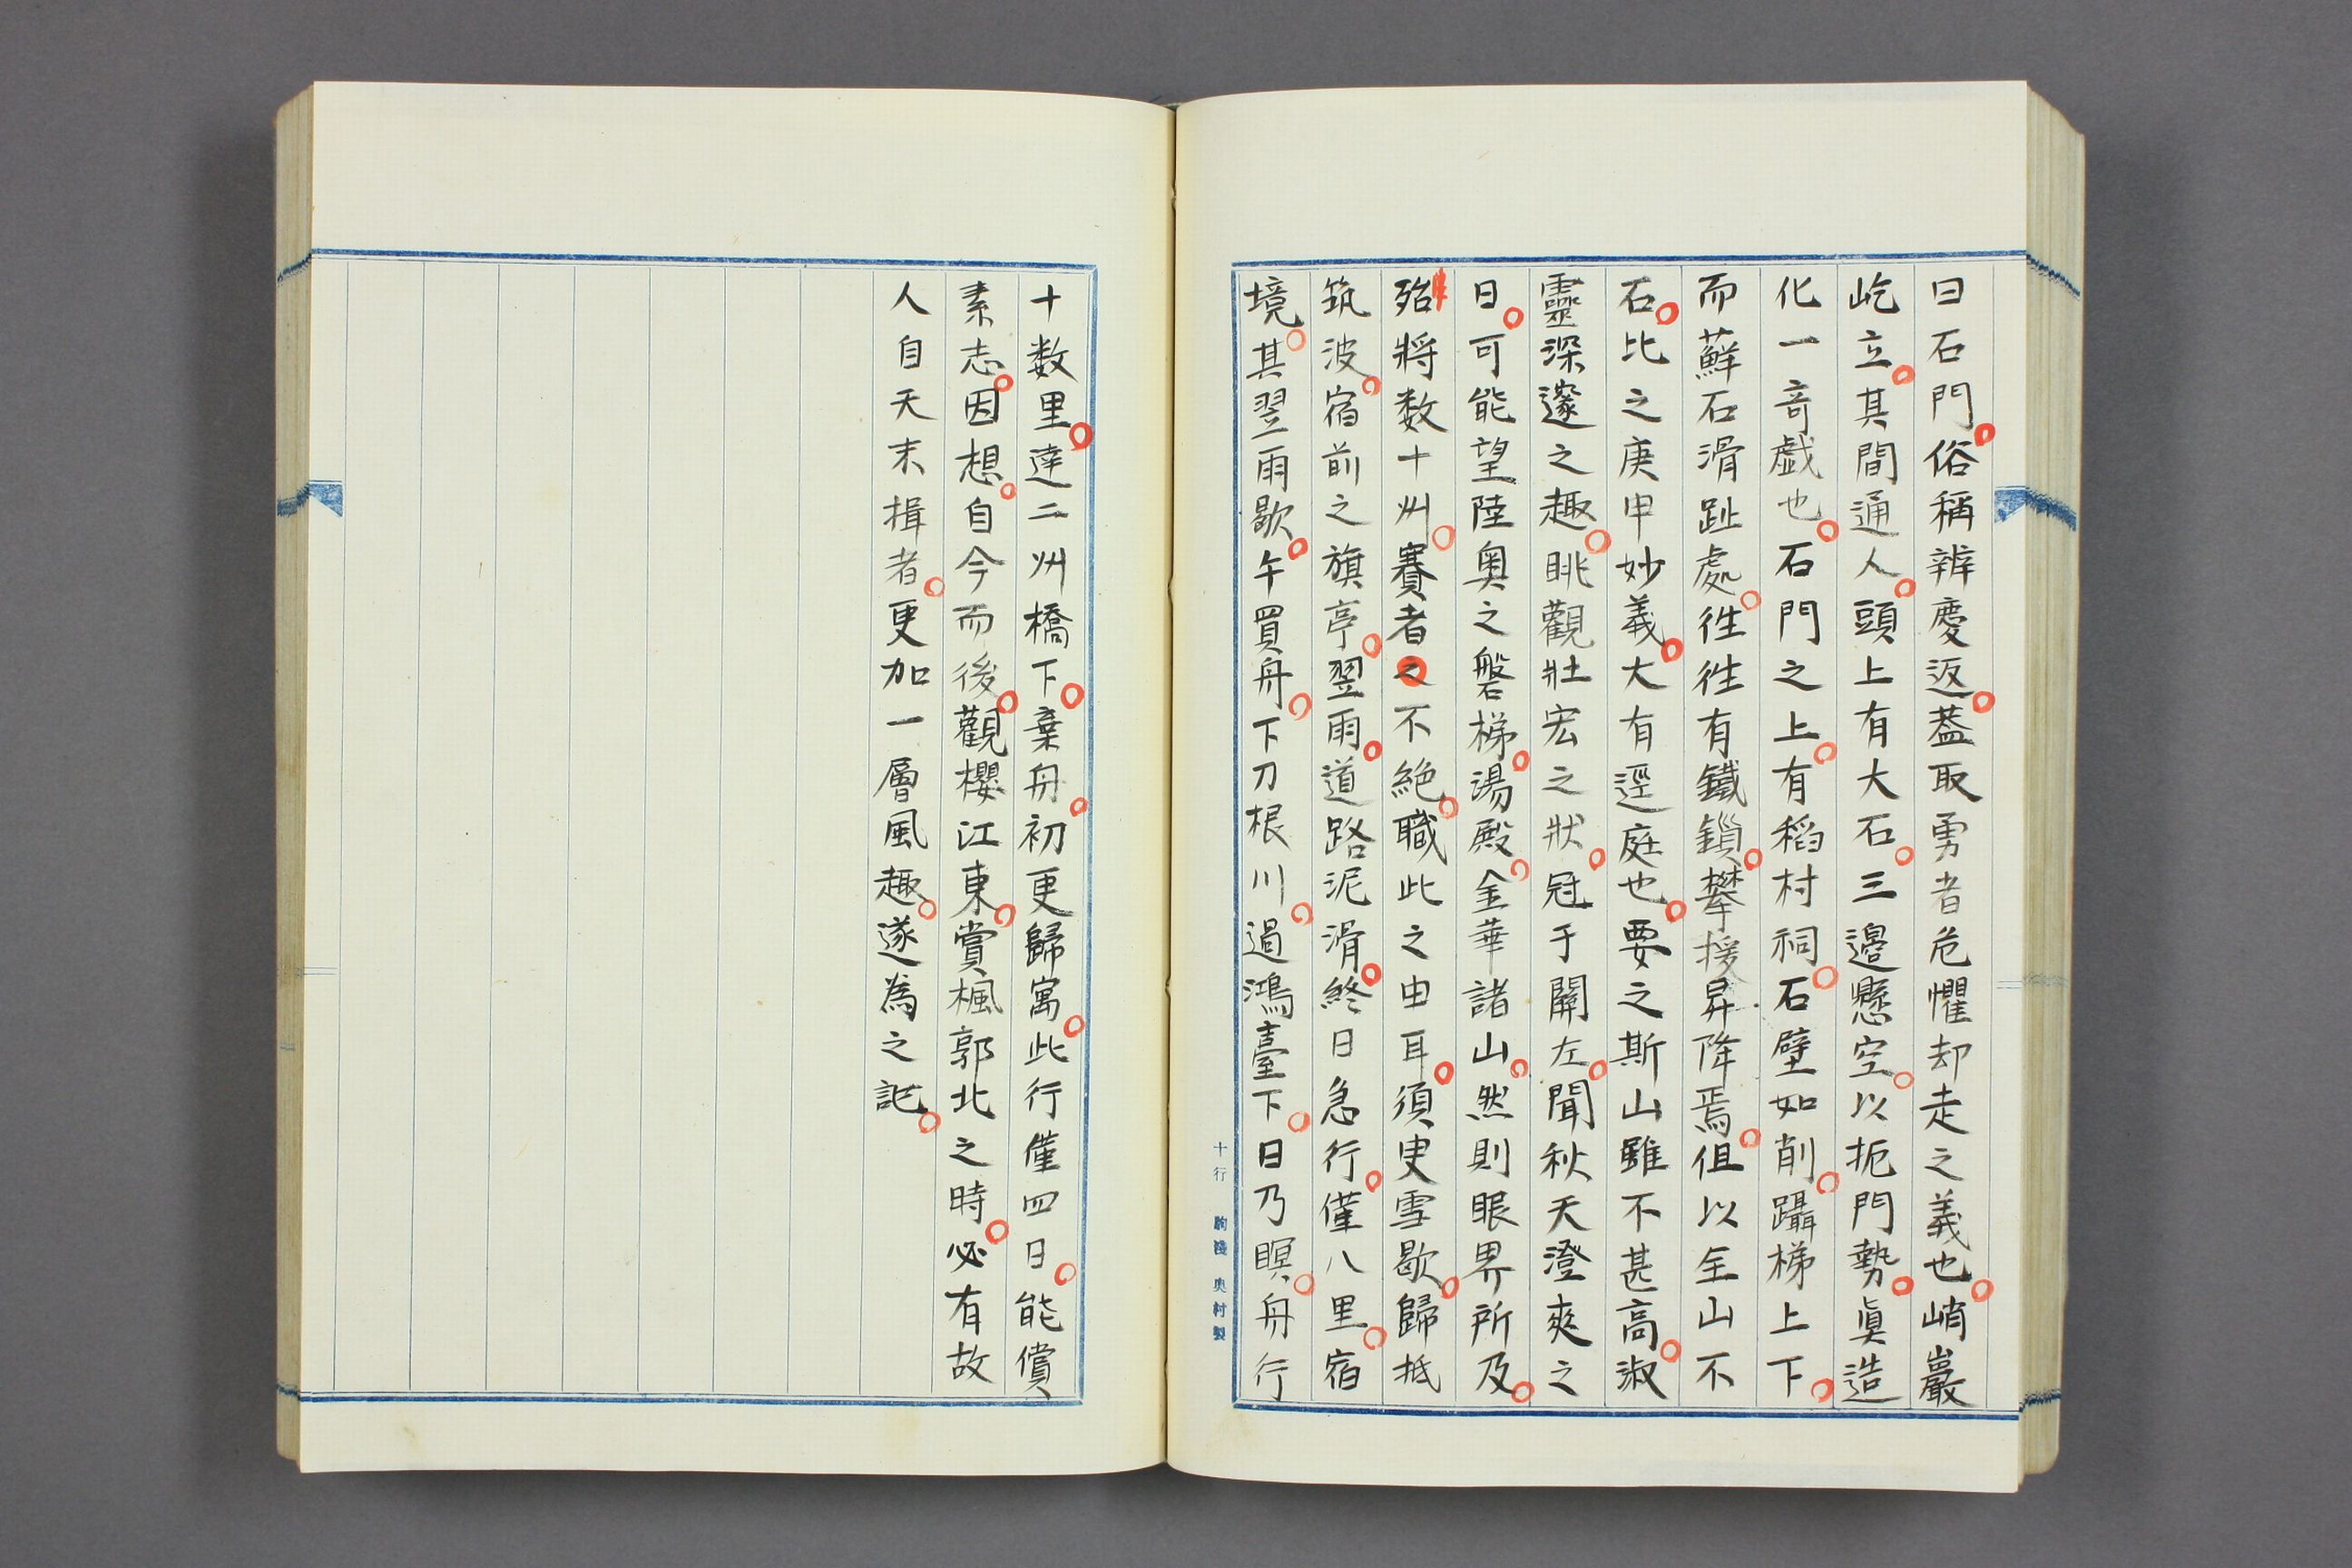 曰石門。俗稱辨慶返。蓋取勇者危懼却走之義也。峭巖
屹立。其間通人。頭上有大石。三邊懸空。以扼門勢。眞造
化一竒戯也。石門之上。有稻村祠。石壁如削。躡梯上下。
而蘚石滑趾處。徃徃有鐵鎖。攀援昇降焉。但以全山不
石。比之庚申妙義。大有逕庭也。要之斯山雖不甚高。淑
靈深邃之趣。眺觀壯宏之狀。冠于關左。聞秋天澄爽之
日。可能望陸奥之磐梯。湯殿。金華諸山。然則眼界所及。
殆將数十州。賽者之不絶。職此之由耳。須臾雪歇。歸抵
筑波。宿前之旗亭。翌雨。道路泥滑。終日急行。僅八里。宿
境。其翌雨歇。午買舟。下刀根川。過鴻臺下。日乃瞑。舟行
十行 駒淺 奥村製
十数里。達二州橋下。棄舟。初更歸寓。此行僅四日。能償
素志。因想。自今而後。觀櫻江東。賞楓郭北之時。必有故
人自天末揖者。更加一層風趣。遂為之記。